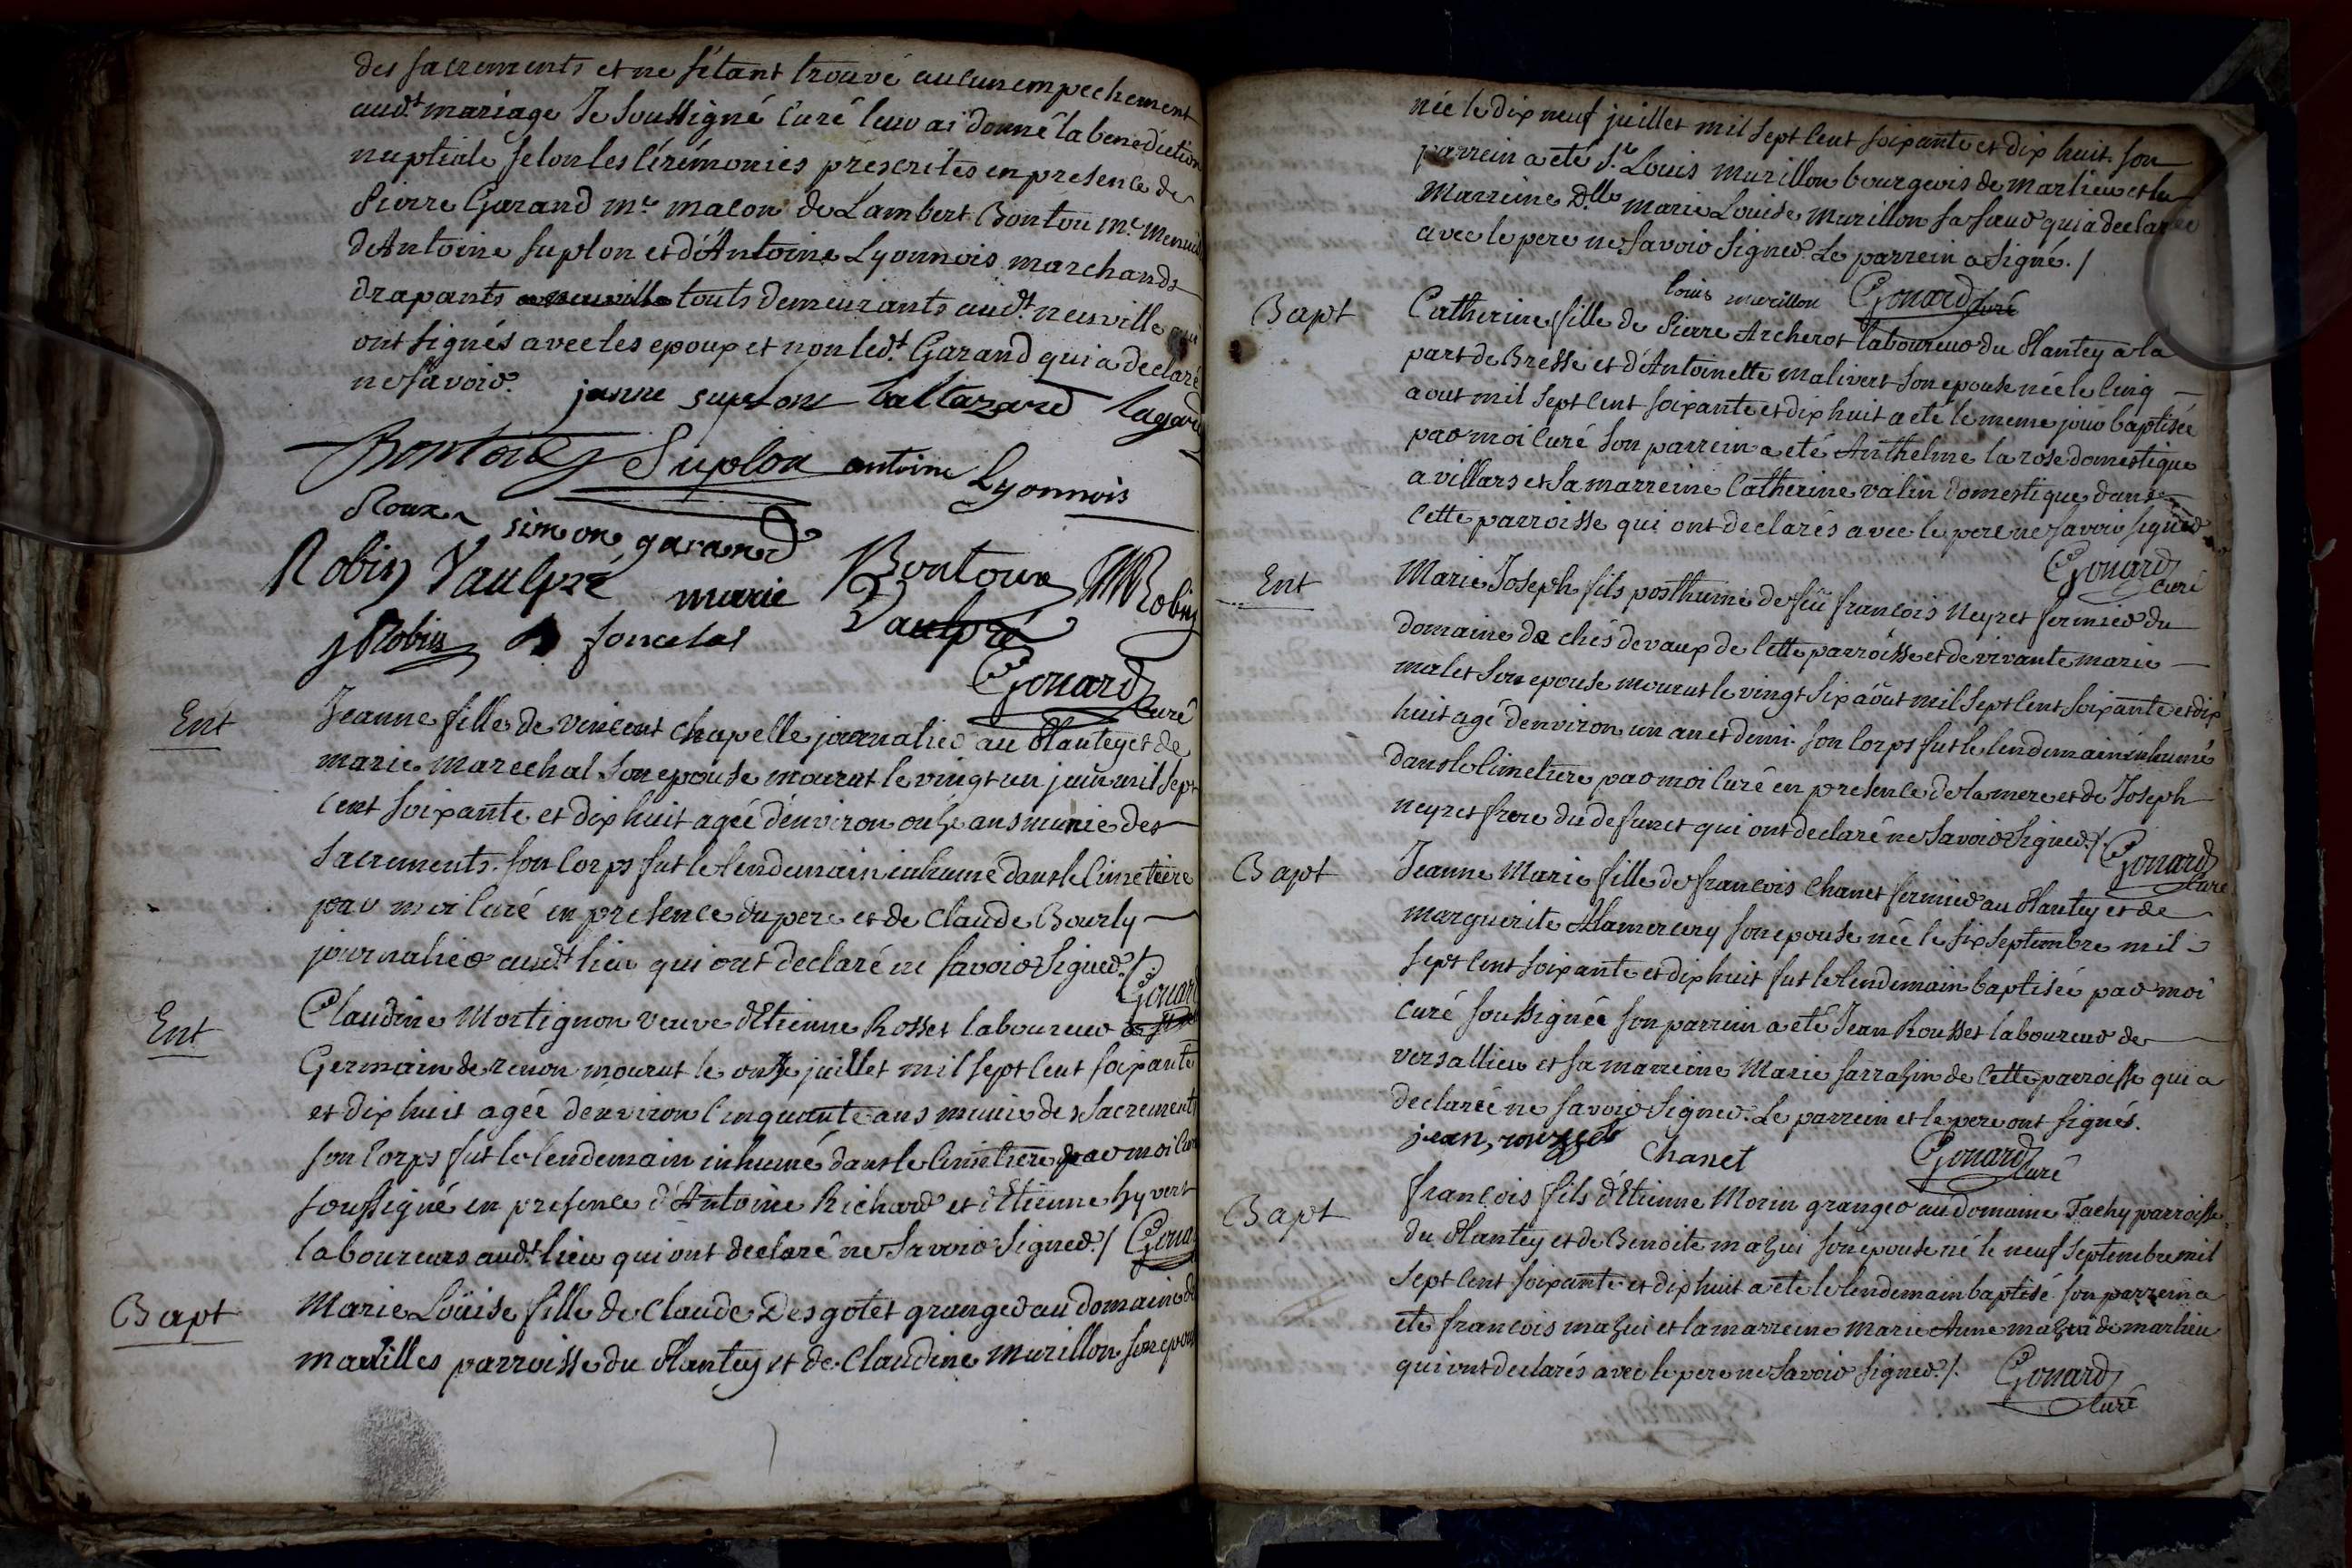 des sacrements et ne s'étant trouvé aucun empechement
aud.t mariage Je soussigné curé leur ai donné la benediction
nuptiale selon les cérémonies prescrites en presence de
Pierre Garand m.e macon de Lambert Bontou m.e menuis
d'Antoine Suplon et d'Antoine Lyonnois marchands
drapants touts demeurants aud.t neuville qui
ont signés avec les epoux et non led.t Garand qui a declaré
ne savoir.
janne suplon baltazard lagard
Bontoux Suplon antoine Lyonnois
Roux simon garand
Robin Vaulpré marie Bontoux MRobin
jRobin Vaulpré
Gouard curé
Ent
Jeanne fille de vincent chapelle journalier au Plantey et de
marie marechal son epouse mourut le vingt un juin mil sept
cent soixante et dix huit agée d'environ onze ans munie des
sacrements. son corps fut le lendemain inhumé dans le cimetière
par moi curé en presence du pere et de Claude Bourly
journalier aud.t lieu qui ont declaré ne savoir signer./.
Gouard
Ent
Claudine Mortignon veuve d'Etienne Rosset laboureur de St
Germain de renon mourut le onze juillet mil sept cent soixante
et dix huit agée d'environ cinquante ans munie des sacrements
son corps fut le lendemain inhumé dans le cimetière par moi curé
soussigné en presence d'Antoine Richard et d'Etienne hyvert
laboureurs aud.t lieu qui ont declaré ne savoir signer./ Gouard
Bapt
Marie Loüise fille de Claude Desgotet granger au domaine de
marilles parroisse du Plantey et de Claudine murillon son epouse
née le dix neuf juillet mil sept cent soixante et dix huit. son
parrein a eté S.r Louis murillon bourgeois de marlieu et la
Marreine D.lle marie Louise murillon sa sœur qui a declarée
avec le pere ne savoir signer. Le parrein a signé./
louis murillon Gouard curé
Bapt
Catherine fille de Pierre Archerot laboureur du Plantey a la
part de Bresse et d'Antoinette malivert son epouse née le cinq
aout mil sept cent soixante et dix huit a eté le meme jour baptisée
par moi curé son parrein a eté Anthelme la rose domestique
a villars et sa marreine Catherine valin domestique dans
cette parroisse qui ont declarés avec le pere ne savoir signer
Gouard curé
Ent
Marie Joseph fils posthume de feü francois Neyret fermier du
domaine de chés devaux de cette parroisse et de vivante marie
malet son epouse mourut le vingt six aout mil sept cent soixante et dix
huit agé d'environ un an et demi. son corps fut le lendemain inhumé
dans le cimetiere par moi curé en presence de la mere et de Joseph
neyret frere du defunct qui ont declaré ne savoir signer./. Gouard curé
Bapt
Jeanne Marie fille de francois Chanet fermier au Plantey et de
marguerite Alamercery son epouse née le six septembre mil
sept cent soixante et dix huit fut le lendemain baptisée par moi
curé soussignée son parrein a eté Jean Rousset laboureur de
versallieu et sa marreine Marie sarrazin de cette parroisse qui a
declarée ne savoir signer. Le parrein et le pere ont signés.
jean rousset Chanet Gouard curé
Bapt
francois fils d'Etienne Morin granger au domaine Tachy parroisse
du Plantey et de Benoite mazui son epouse né le neuf septembre mil
sept cent soixante et dix huit a eté le lendemain baptisé. son parrein a
eté francois mazui et la marreine Marie Anne mazui de marlieu
qui ont declarés avec le pere ne savoir signer./. Gouard
curé